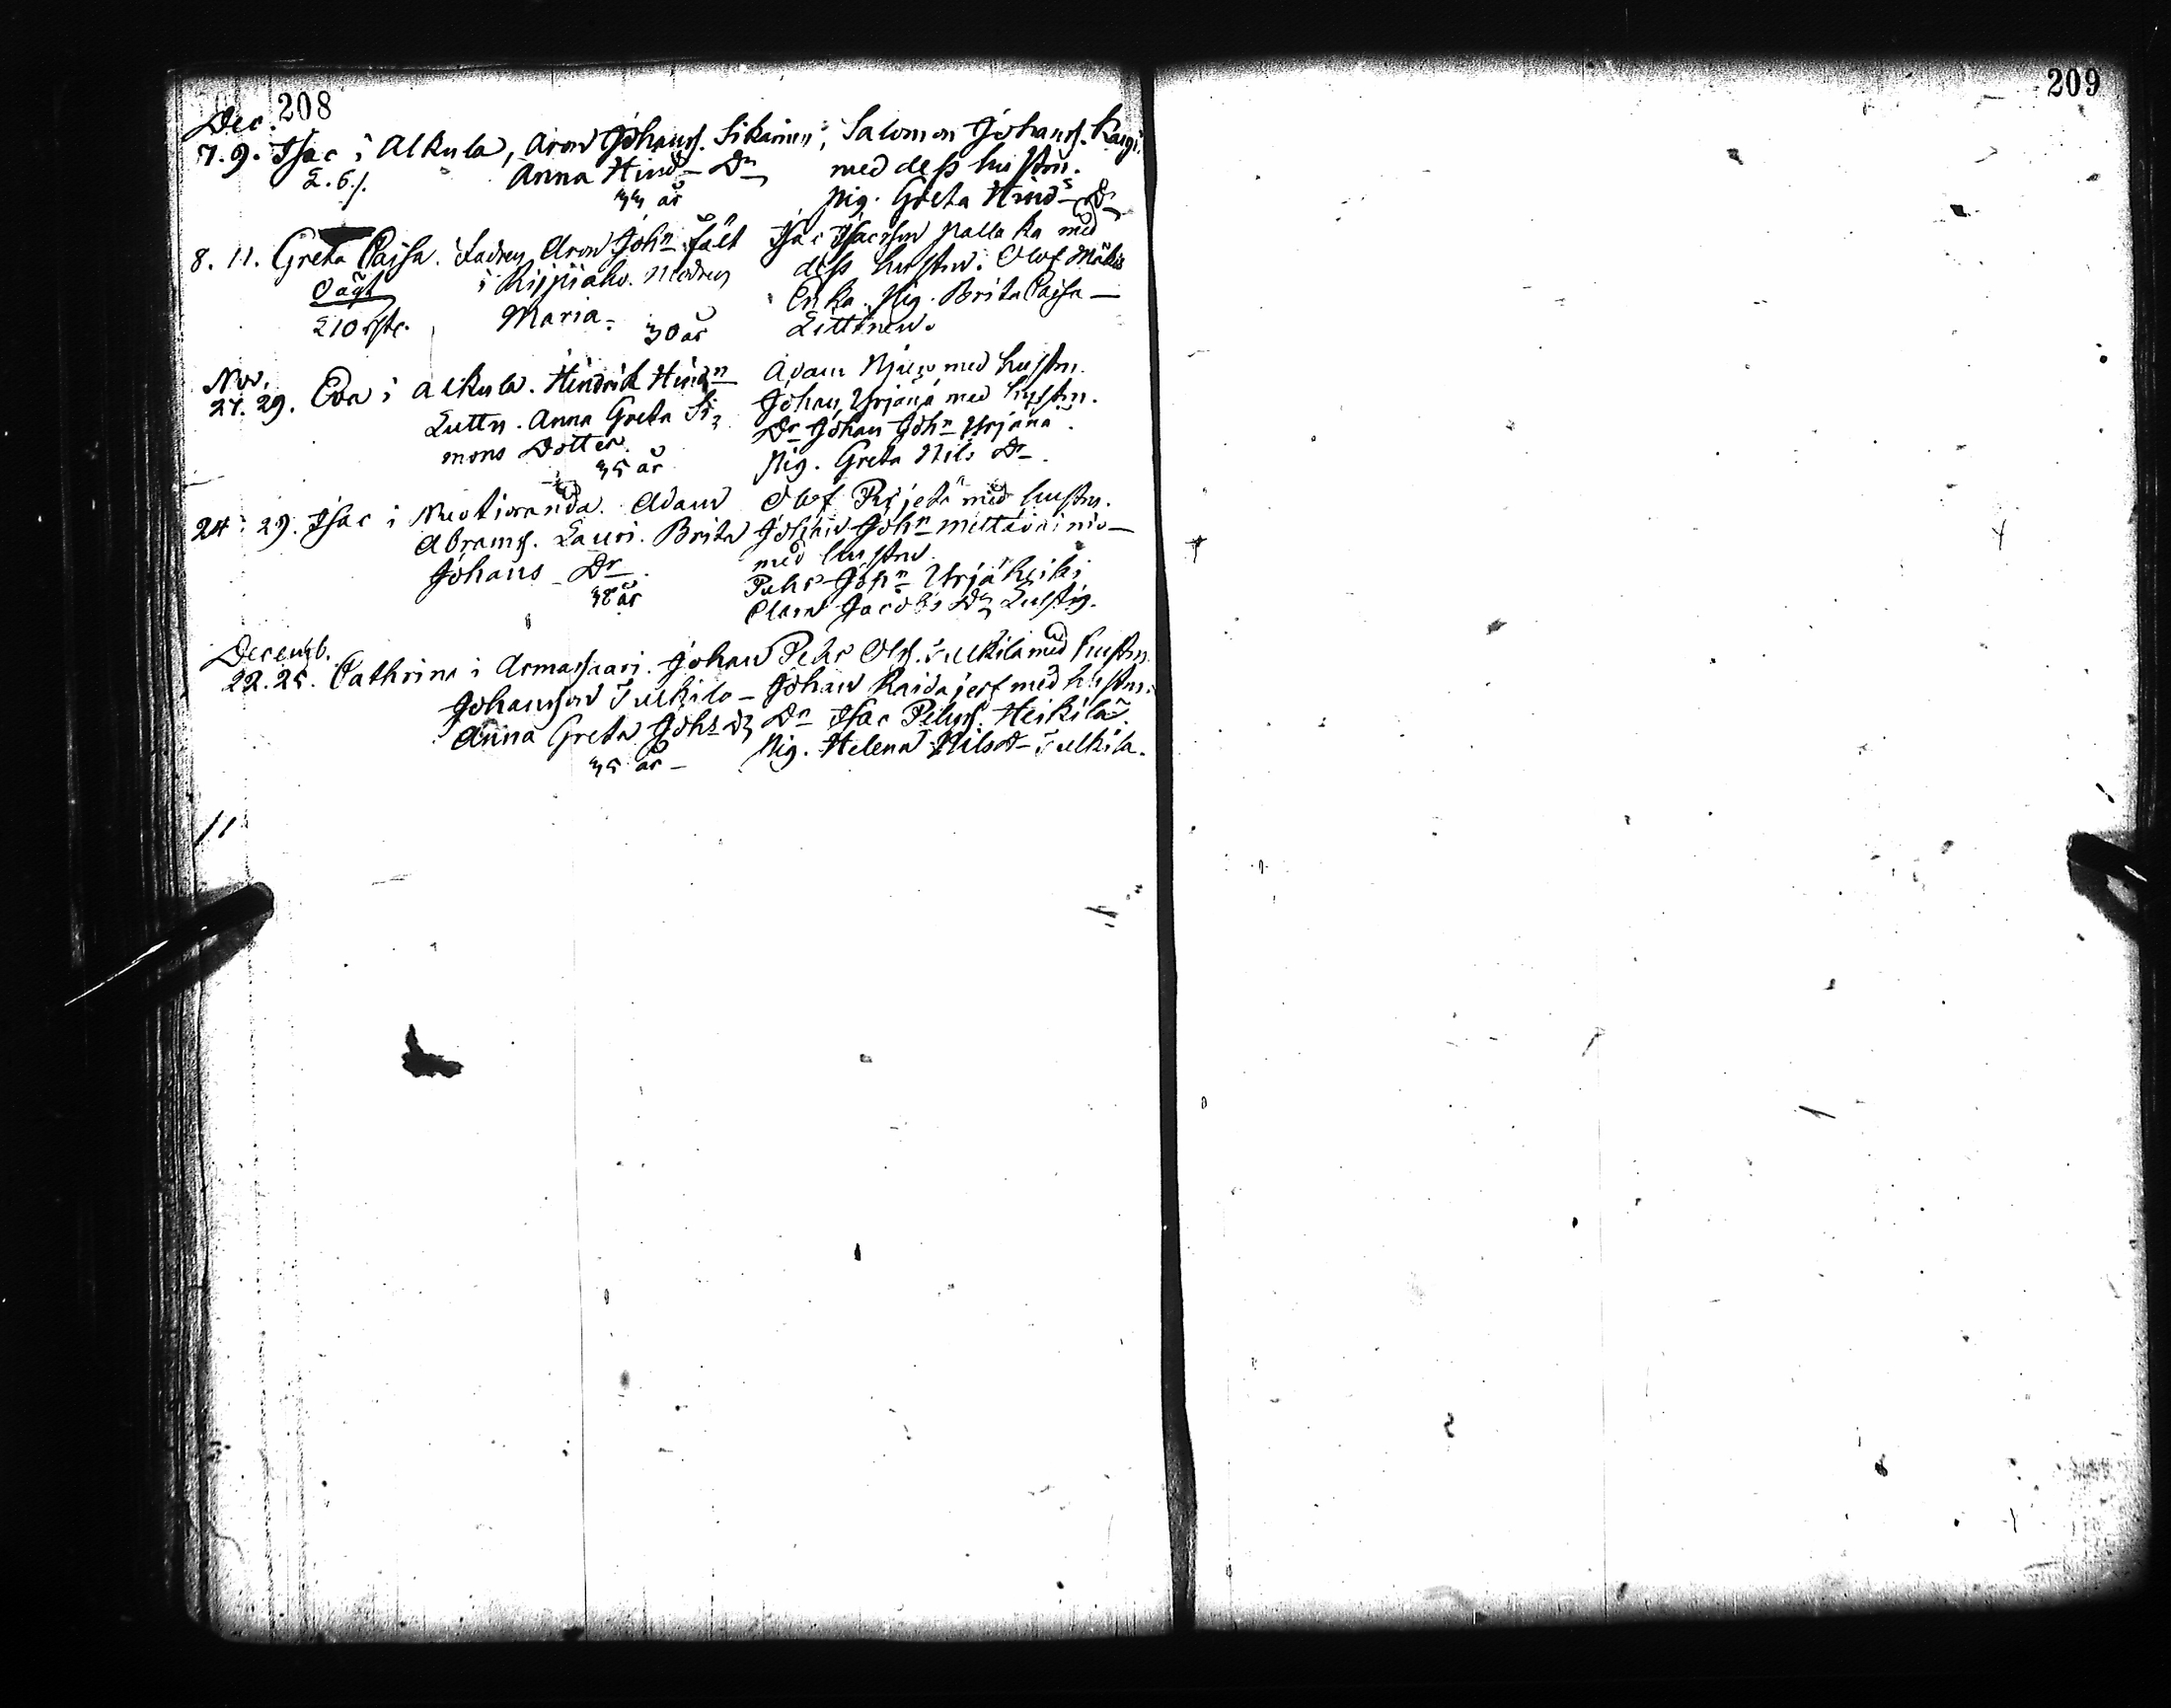 208
209
Dec.
7. 9. Isac i Alkula, Aron Johanss. Sikainen; Salomon Johanss. Kangi
2. 6. Anna Hind. Dr med dess hustru.
33 år pig. Greta Hinds Dr
8. 11. Greta Cajsa. Fadren Aron John Fält Isac Isacsson Pallaka med
Oägt i Kippiaho. Modren dess hustru. Olof Mäkis
210 Maria. Enka. Pig. Brita Cajsa
30 år
Nov.
27. 29. Eva i Alkula. Hindrik Hindn Adam med hustru.
Luttu. Anna Greta Si- Johan Yrjänä med hustru.
mons Dotter. Dr Johan John Yrjänä.
35 år Pig. Greta Nils Dr.
24. 29. Isac i Nuotioranda. Adam Olof med hustru.
Abramss. Lauri. Brita Johan John Mettävainio
Johans Dr. med hustru.
38 år Pehr John Yrjäheiki
Clara Jacobs Dr Lustig.
Decemb.
22. 25. Cathrina i Armassaari. Johan Pehr Ols. Tulkila med hustru.
Johansson Tulkila Johan Raidajerf med hustru.
Anna Greta Johs Dr Dr Isac Pehrss. Heikilä.
35 år Pig. Helena Nils Dr Tulkila.
11